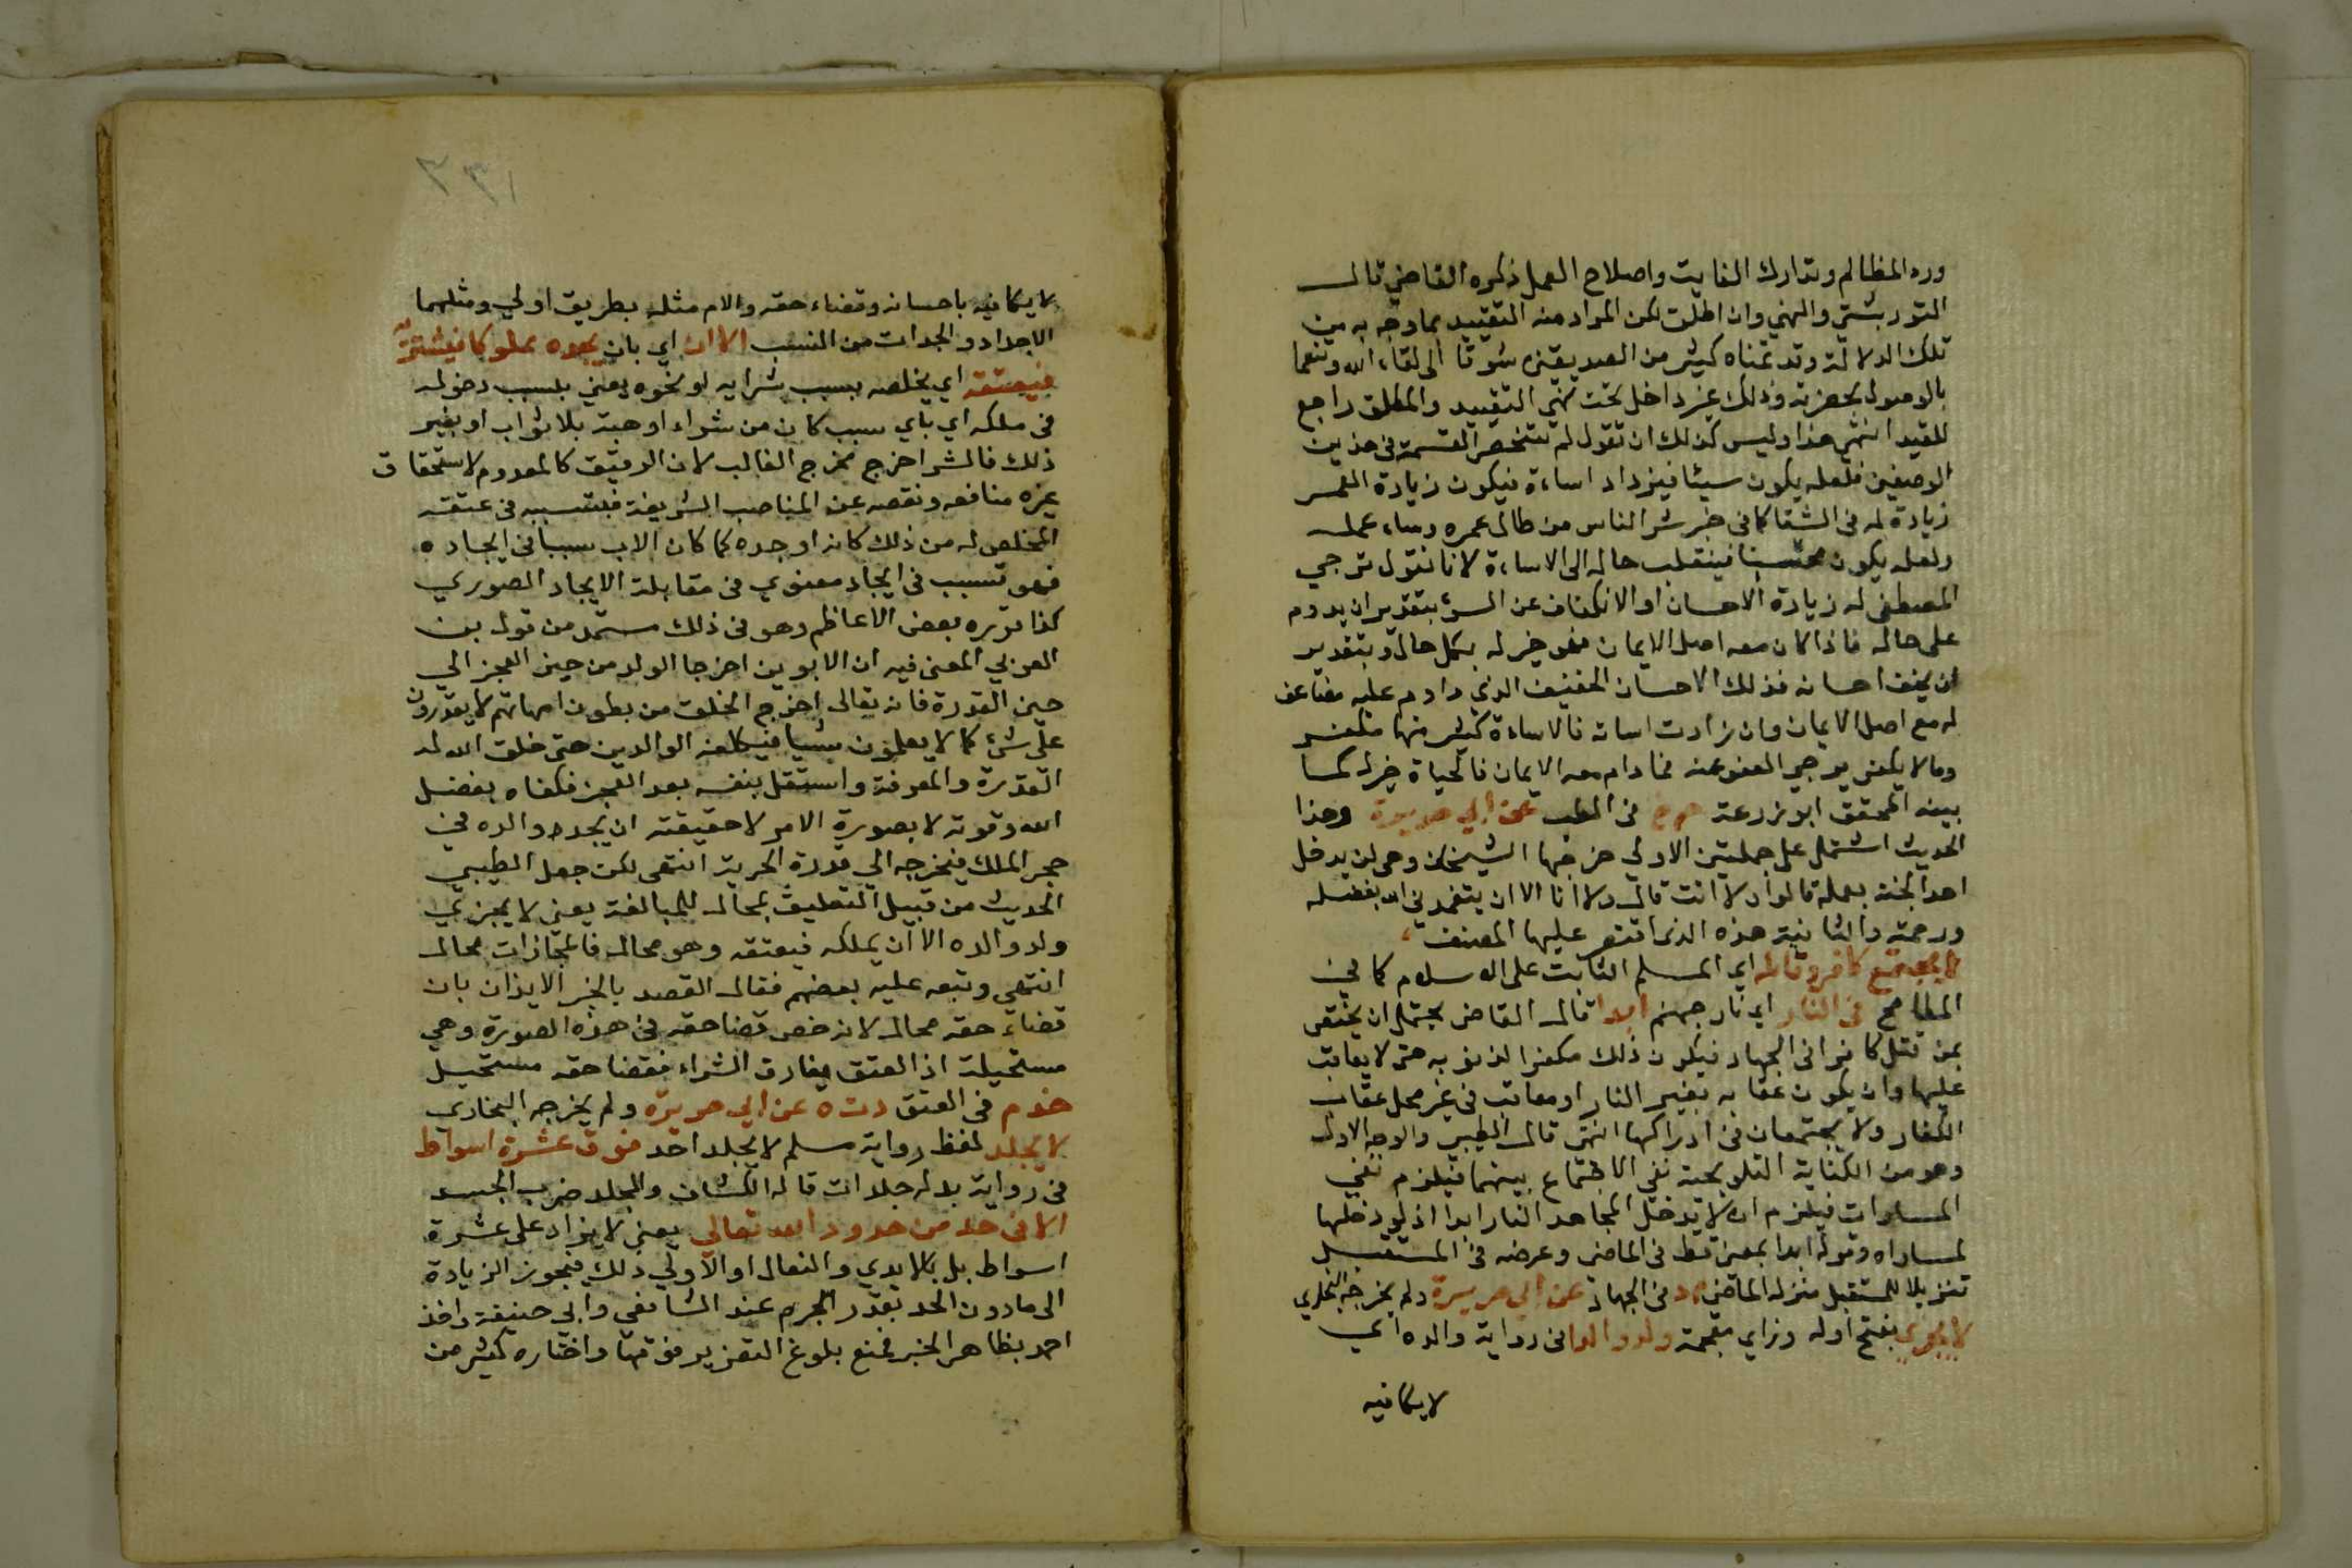 ورد المظالم وتدارك الفايت واصلاح العمل ذكره القاضي قال
التوربشتي والنهي وان اطلق لكن المراد منه التقييد بما وجه به من
تلك الدلالة وقد تمناه كثير من الصديقين شوقا الى لقاء الله وتنعما
بالوصول لحضرته وذلك غير داخل تحت نهي التقييد والمطلق راجع
للمقيد انتهى هذا وليس كذلك ان تقول لم تنحصر القسمة في هذين
الوصفين فلعله يكون سيئا فيزداد اساءة فيكون زيادة العمر
زيادة له في الشقا كما في خبر شر الناس من طال عمره وساء عمله
ولعله يكون محسنا فينقلب حاله الى الاساءة لانا نقول ترجي
المصطفى له زيادة الاحسان او الانكفاف عن السوء بتقدير ان يدوم
على حاله فاذا كان معه اصل الايمان فهو خير له بكل حال وبتقدير
ان يخف احسانه فذلك الاحسان الخفيف الذي داوم عليه مضاعف
له مع اصل الايمان وان زادت اساته فالاساءة كثير منها مكفر
وما لا يكفر يرجى العفو عنه فما دام معه الايمان فالحياة خير له كما
بينه المحقق ابو زرعة حم خ في الطب عن ابي هريرة وهذا
الحديث اشتمل على جملتين الاولى خرجها الشيخان وهي لن يدخل
احدا الجنة بعمله قالوا ولا انت قال ولا انا الا ان يتغمدني الله بفضله
ورحمته والثانية هذه الذي اقتصر عليها المصنف
لا يجتمع كافر وقاتله اي المسلم الثابت على الاسلام كما في
المطامح في النار اي نار جهنم ابدا قال القاضي يحتمل ان يختص
بمن قتل كافرا في الجهاد فيكون ذلك مكفرا لذنوبه حتى لا يعاقب
عليها وان يكون عقابه بغير النار او معاقب في غير محل عقاب
الكفار ولا يجتمعان في ادراكها انتهى قال الطيبي والوجه الاول
وهو من الكناية التلويحية نفي الاجتماع بينهما فيلزم نفي
المساوات فيلزم ان لا يدخل المجاهد النار ابدا اذ لو دخلها
لساواه وقوله ابدا بمعنى قط في الماضي وعوضه في المستقبل
تنزيلا للمستقبل منزلة الماضي م د في الجهاد عن ابي هريرة ولم يخرجه البخاري
لا يجزي بفتح اوله وزاي معجمة ولد والدا في رواية والده اي
لا يكافيه
٣٣١
لا يكافيه باحسانه وقضاء حقه والام مثله بطريق اولي ومثلهما
الاجداد والجدات من النسب الا ان اي بان يجده مملوكا فيشتريه
فيعتقه اي يخلصه بسبب شرايه او نحوه يعني بسبب دخوله
في ملكه اي باي سبب كان من شراء او هبة بلا ثواب او بغير
ذلك فالشرا خرج مخرج الغالب لان الرقيق كالمعدوم لاستحقاق
غيره منافعه ونقصه عن المناصب الشريفة فتسببه في عتقه
المخلص له من ذلك كانه اوجده كما كان الاب سببا في ايجاده
فهو تسبب في ايجاد معنوي في مقابلة الايجاد الصوري
كذا قرره بعض الاعاظم وهو في ذلك مستمد من قول بن
العربي المعنى فيه ان الابوين اخرجا الولد من حيز العجز الي
حيز القدرة فانه تعالى اخرج الخلق من بطون امهاتهم لا يقدرون
على شئ كما لا يعلمون شيا فيكلفه الوالدين حتى خلق الله له
القدرة والمعرفة واستقل بنفسه بعد العجز فكفاه بفضل
الله وقوته لا بصورة الامر لا حقيقته ان يجد والده في
حجر الملك فيخرجه الي قدرة الحرية انتهى لكن جعل الطيبي
الحديث من قبيل التعليق بمحال للمبالغة يعني لا يجزي
ولد والده الا ان يملكه فيعتقه وهو محال فالمجازات محال
انتهى وتبعه عليه بعضهم فقال القصد بالخبر الايذان بان
قضاء حقه محال لانه خص قضا حقه في هذه الصورة وهي
مستحيلة اذ العتق يقارن الشراء فقضا حقه مستحيل
خد م في العتق د ت ه عن ابي هريرة ولم يخرجه البخاري
لا يجلد لفظ رواية مسلم لا يجلد احد فوق عشرة اسواط
في رواية بدله جلدات قاله الكشاف والجلد ضرب الجسد
الا في حد من حدود الله تعالى يعني لا يزاد على عشرة
اسواط بل بالايدي والنعال او الاولي ذلك فيجوز الزيادة
الى ما دون الحد بقدر الجرم عند الشافعي وابي حنيفة واخذ
احمد بظاهر الخبر فمنع بلوغ التعزير فوقها واختاره كثير من